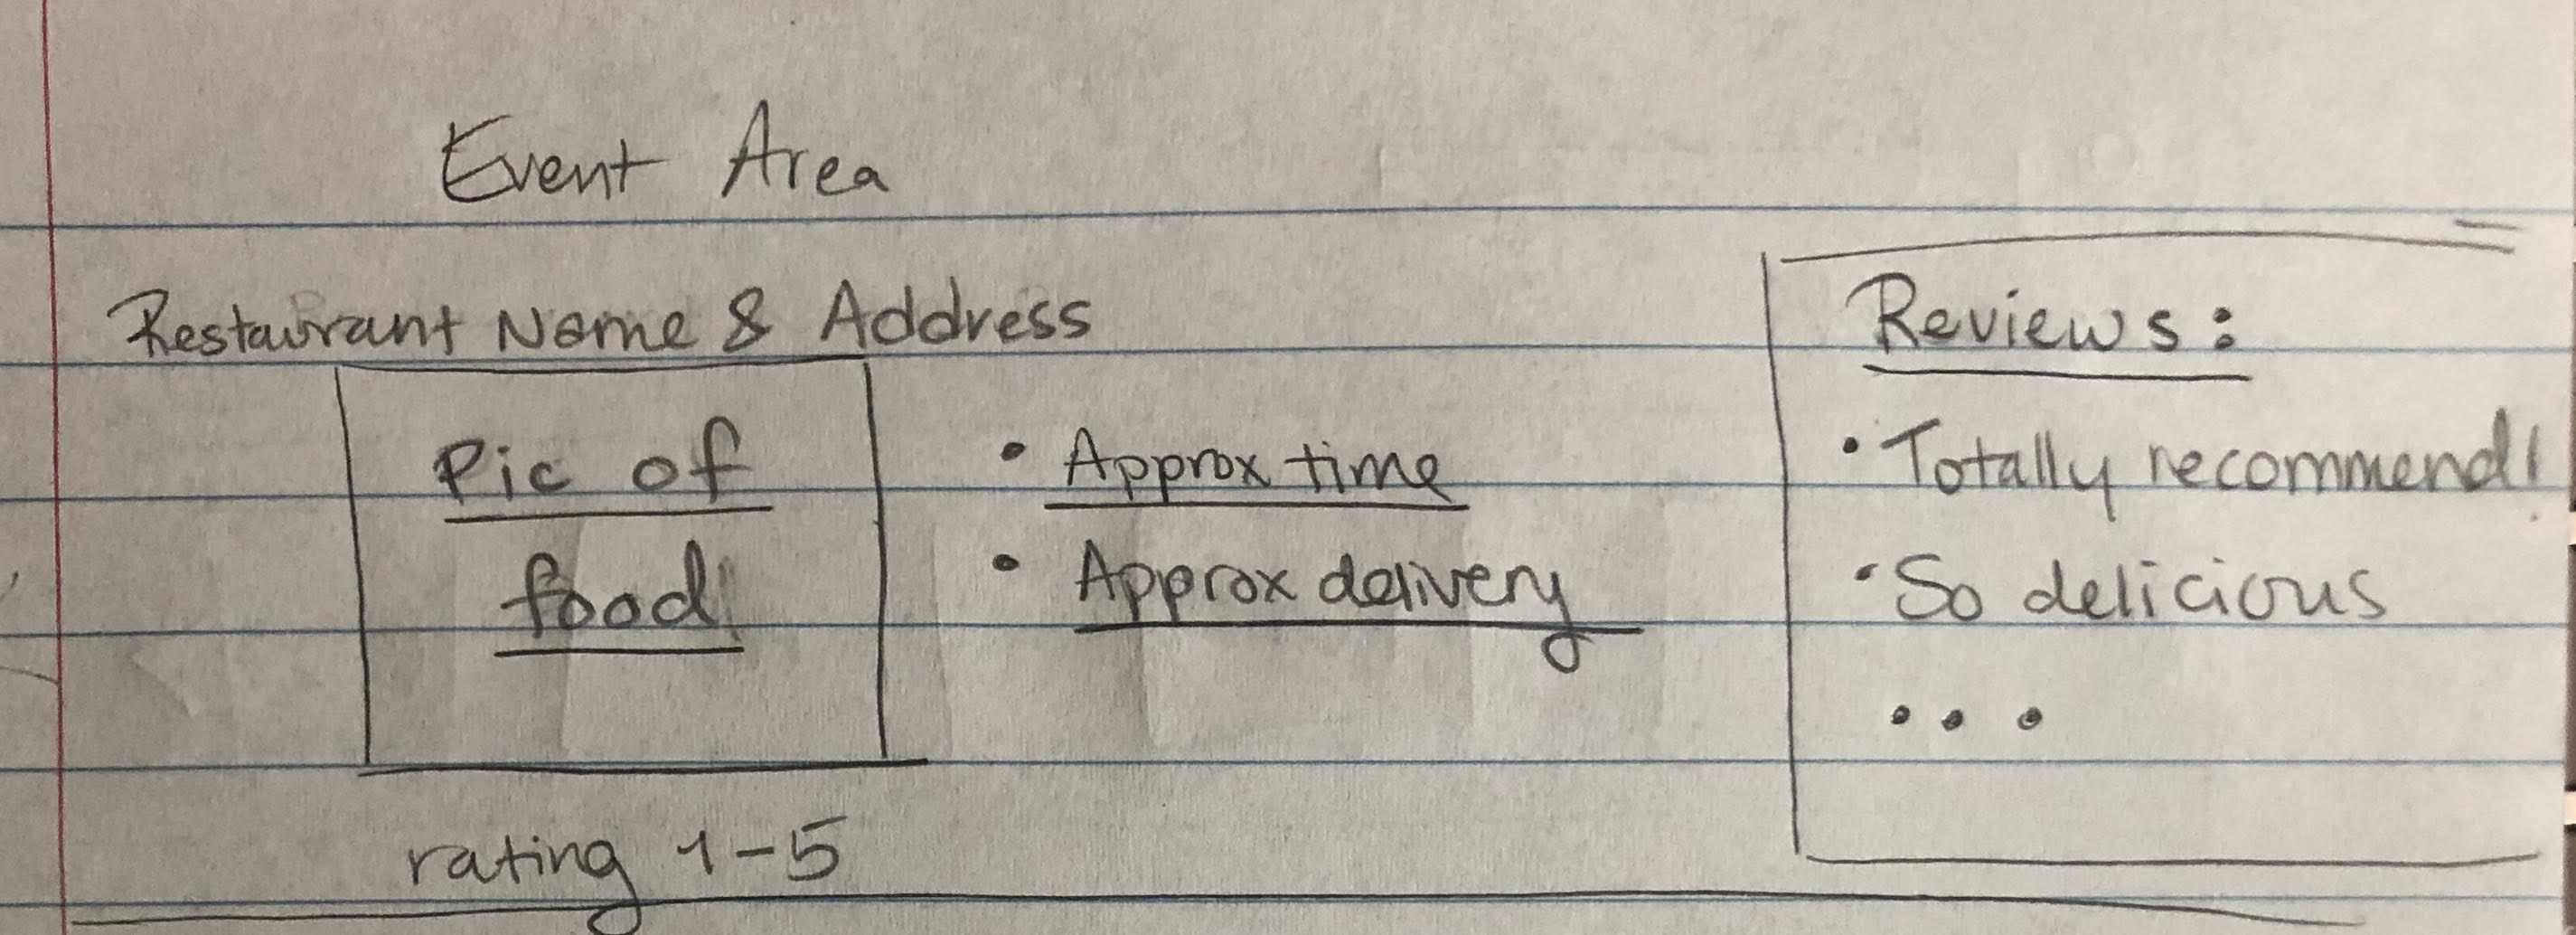 Event Area
Restaurant Name & Address
Pic of
food
• Approx time
• Approx delivery
rating 1-5
Reviews:
• Totally recommend!
• So delicious
• • •